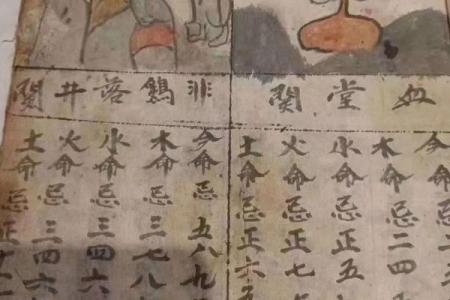 堂關
今命忌三
木命忌二四
水命忌正五
火命忌正七
土命忌正六五
非鷄落井關
今命忌五八九
木命忌三七八
水命忌三四六
火命忌三四
土命忌正十